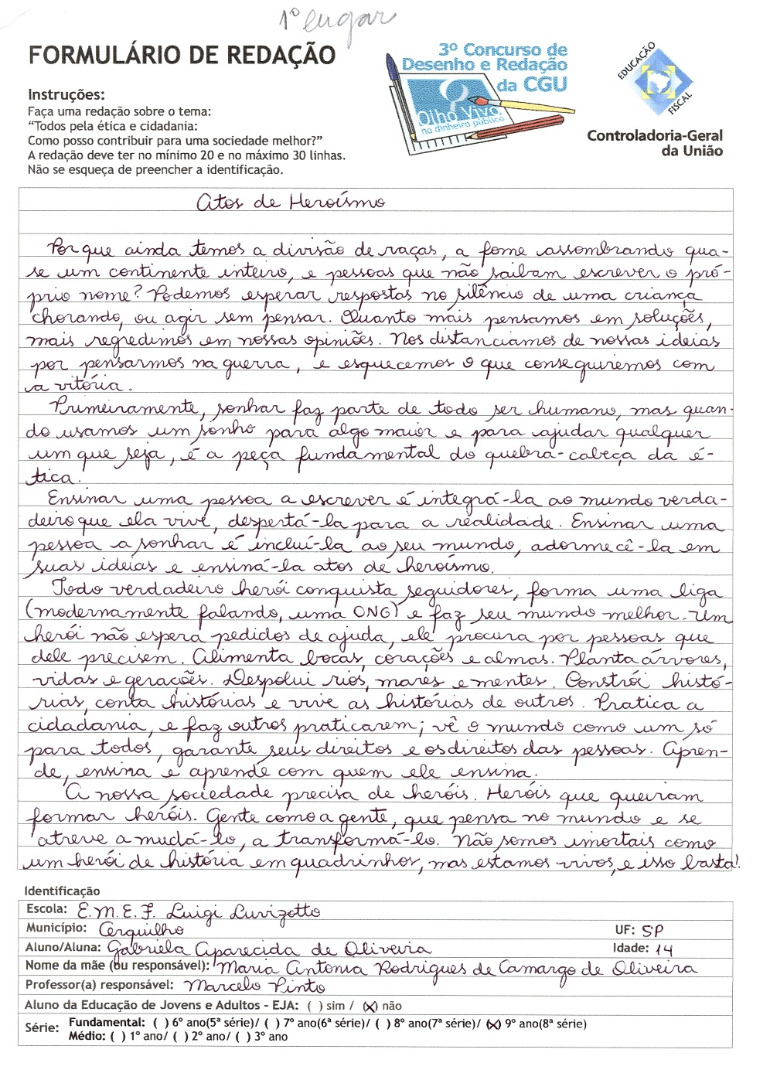 1º lugar
FORMULÁRIO DE REDAÇÃO
Instruções:
Faça uma redação sobre o tema:
“Todos pela ética e cidadania:
Como posso contribuir para uma sociedade melhor?”
A redação deve ter no mínimo 20 e no máximo 30 linhas.
Não se esqueça de preencher a identificação.
3º Concurso de
Desenho e Redação
da CGU
Olho Vivo
no dinheiro público
EDUCAÇÃO
FISCAL
Controladoria-Geral
da União
Atos de Heroísmo
Por que ainda temos a divisão de raças, a fome assombrando qua-
se um continente inteiro, e pessoas que não saibam escrever o pró-
prio nome? Podemos esperar respostas no silêncio de uma criança
chorando, ou agir sem pensar. Quanto mais pensamos em soluções,
mais regredimos em nossas opiniões. Nos distanciamos de nossas ideias
por pensarmos na guerra, e esquecemos o que conseguiremos com
a vitória.
Primeiramente, sonhar faz parte de todo ser humano, mas quan-
do usamos um sonho para algo maior e para ajudar qualquer
um que seja, é a peça fundamental do quebra-cabeça da é-
tica.
Ensinar uma pessoa a escrever é integrá-la ao mundo verda-
deiro que ela vive, despertá-la para a realidade. Ensinar uma
pessoa a sonhar é incluí-la ao seu mundo, adormecê-la em
suas ideias e ensiná-la atos de heroísmo.
Todo verdadeiro herói conquista seguidores, forma uma liga
(modernamente falando, uma ONG) e faz seu mundo melhor. Um
herói não espera pedidos de ajuda, ele procura por pessoas que
dele precisem. Alimenta bocas, corações e almas. Planta árvores,
vidas e gerações. Despolui rios, mares e mentes. Constrói histó-
rias, conta histórias e vive as histórias de outros. Pratica a
cidadania, e faz outros praticarem; vê o mundo como um só
para todos, garante seus direitos e os direitos das pessoas. Apren-
de, ensina e aprende com quem ele ensina.
A nossa sociedade precisa de heróis. Heróis que queiram
formar heróis. Gente como a gente, que pensa no mundo e se
atreve a mudá-lo, a transformá-lo. Não somos imortais como
um herói de história em quadrinhos, mas estamos vivos, e isso basta!
Identificação
Escola: E.M.E.F. Luigi Lurizotto
Município: Cerquilho UF: SP
Aluno/Aluna: Gabriela Aparecida de Oliveira Idade: 14
Nome da mãe (ou responsável): Maria Antonia Rodrigues de Camargo de Oliveira
Professor(a) responsável: Marcelo Pinto
Aluno da Educação de Jovens e Adultos - EJA: ( ) sim / (x) não
Série: Fundamental: ( ) 6º ano(5ª série)/ ( ) 7º ano(6ª série)/ ( ) 8º ano(7ª série)/ (x) 9º ano(8ª série)
Médio: ( ) 1º ano/ ( ) 2º ano/ ( ) 3º ano